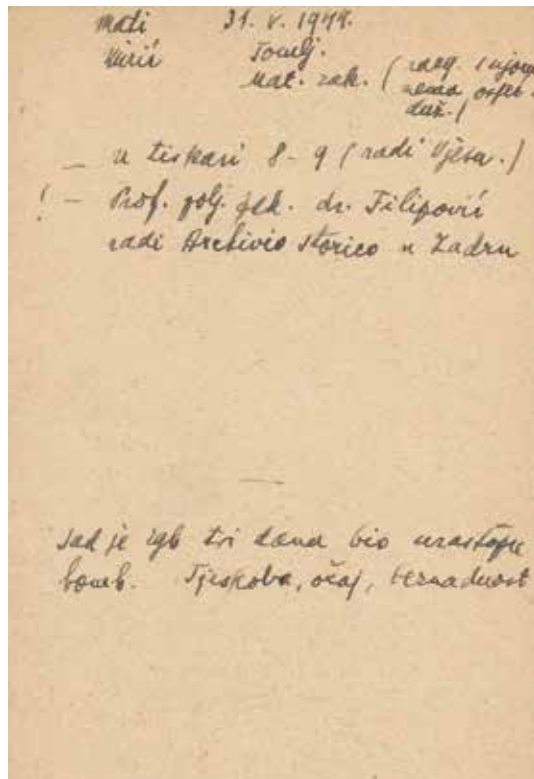 Mati 31. V. 1944.
Tomlj.
Mat. zak. (
nema
duž.)
— u tiskari 8-9 (radi Vjesn.)
! — Prof. polj. fak. dr. Filipović
radi Archivio storico u Zadru
—
Sad je Zgb tri dana bio uzastopce
bomb. Tjeskoba, očaj, beznadnost